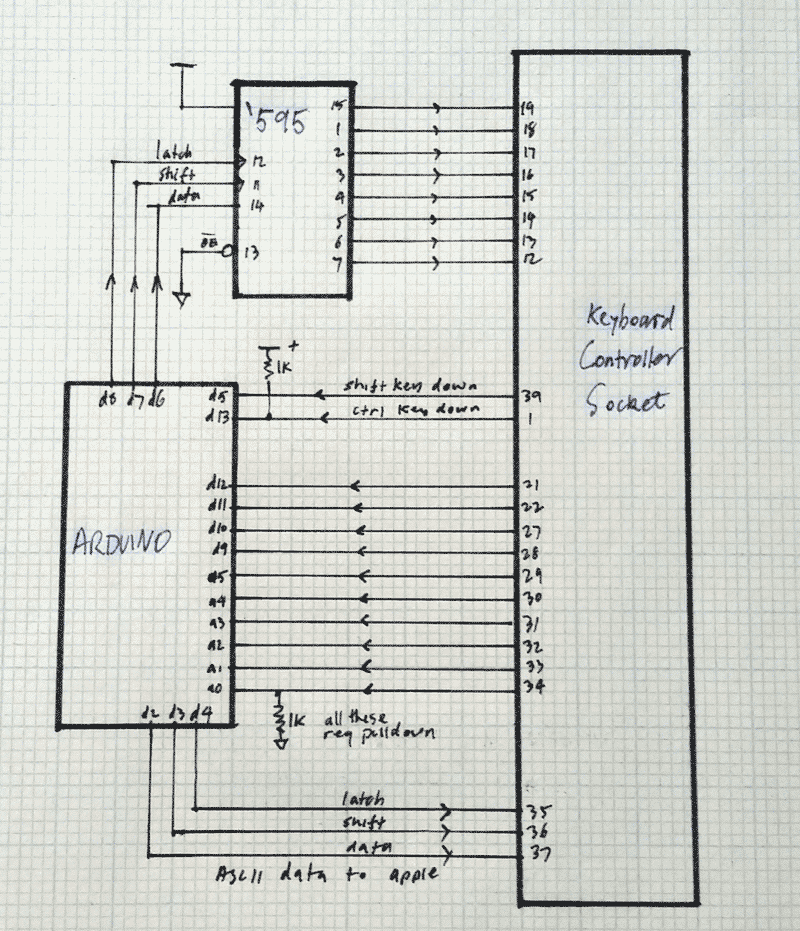 '595
15 19
1 18
2 17
latch 12 3 16
shift 11 4 15
data 14 5 14
6 13
OE 13 7 12
Keyboard
Controller
Socket
+
1K
d8 d7 d6 d5 shift key down 39
d13 ctrl key down 1
d12 21
d11 22
d10 27
ARDUINO d9 28
a5 29
a4 30
a3 31
a2 32
a1 33
a0 34
d2 d3 d4 1K all these
req pulldown
latch 35
shift 36
data 37
Ascii data to apple